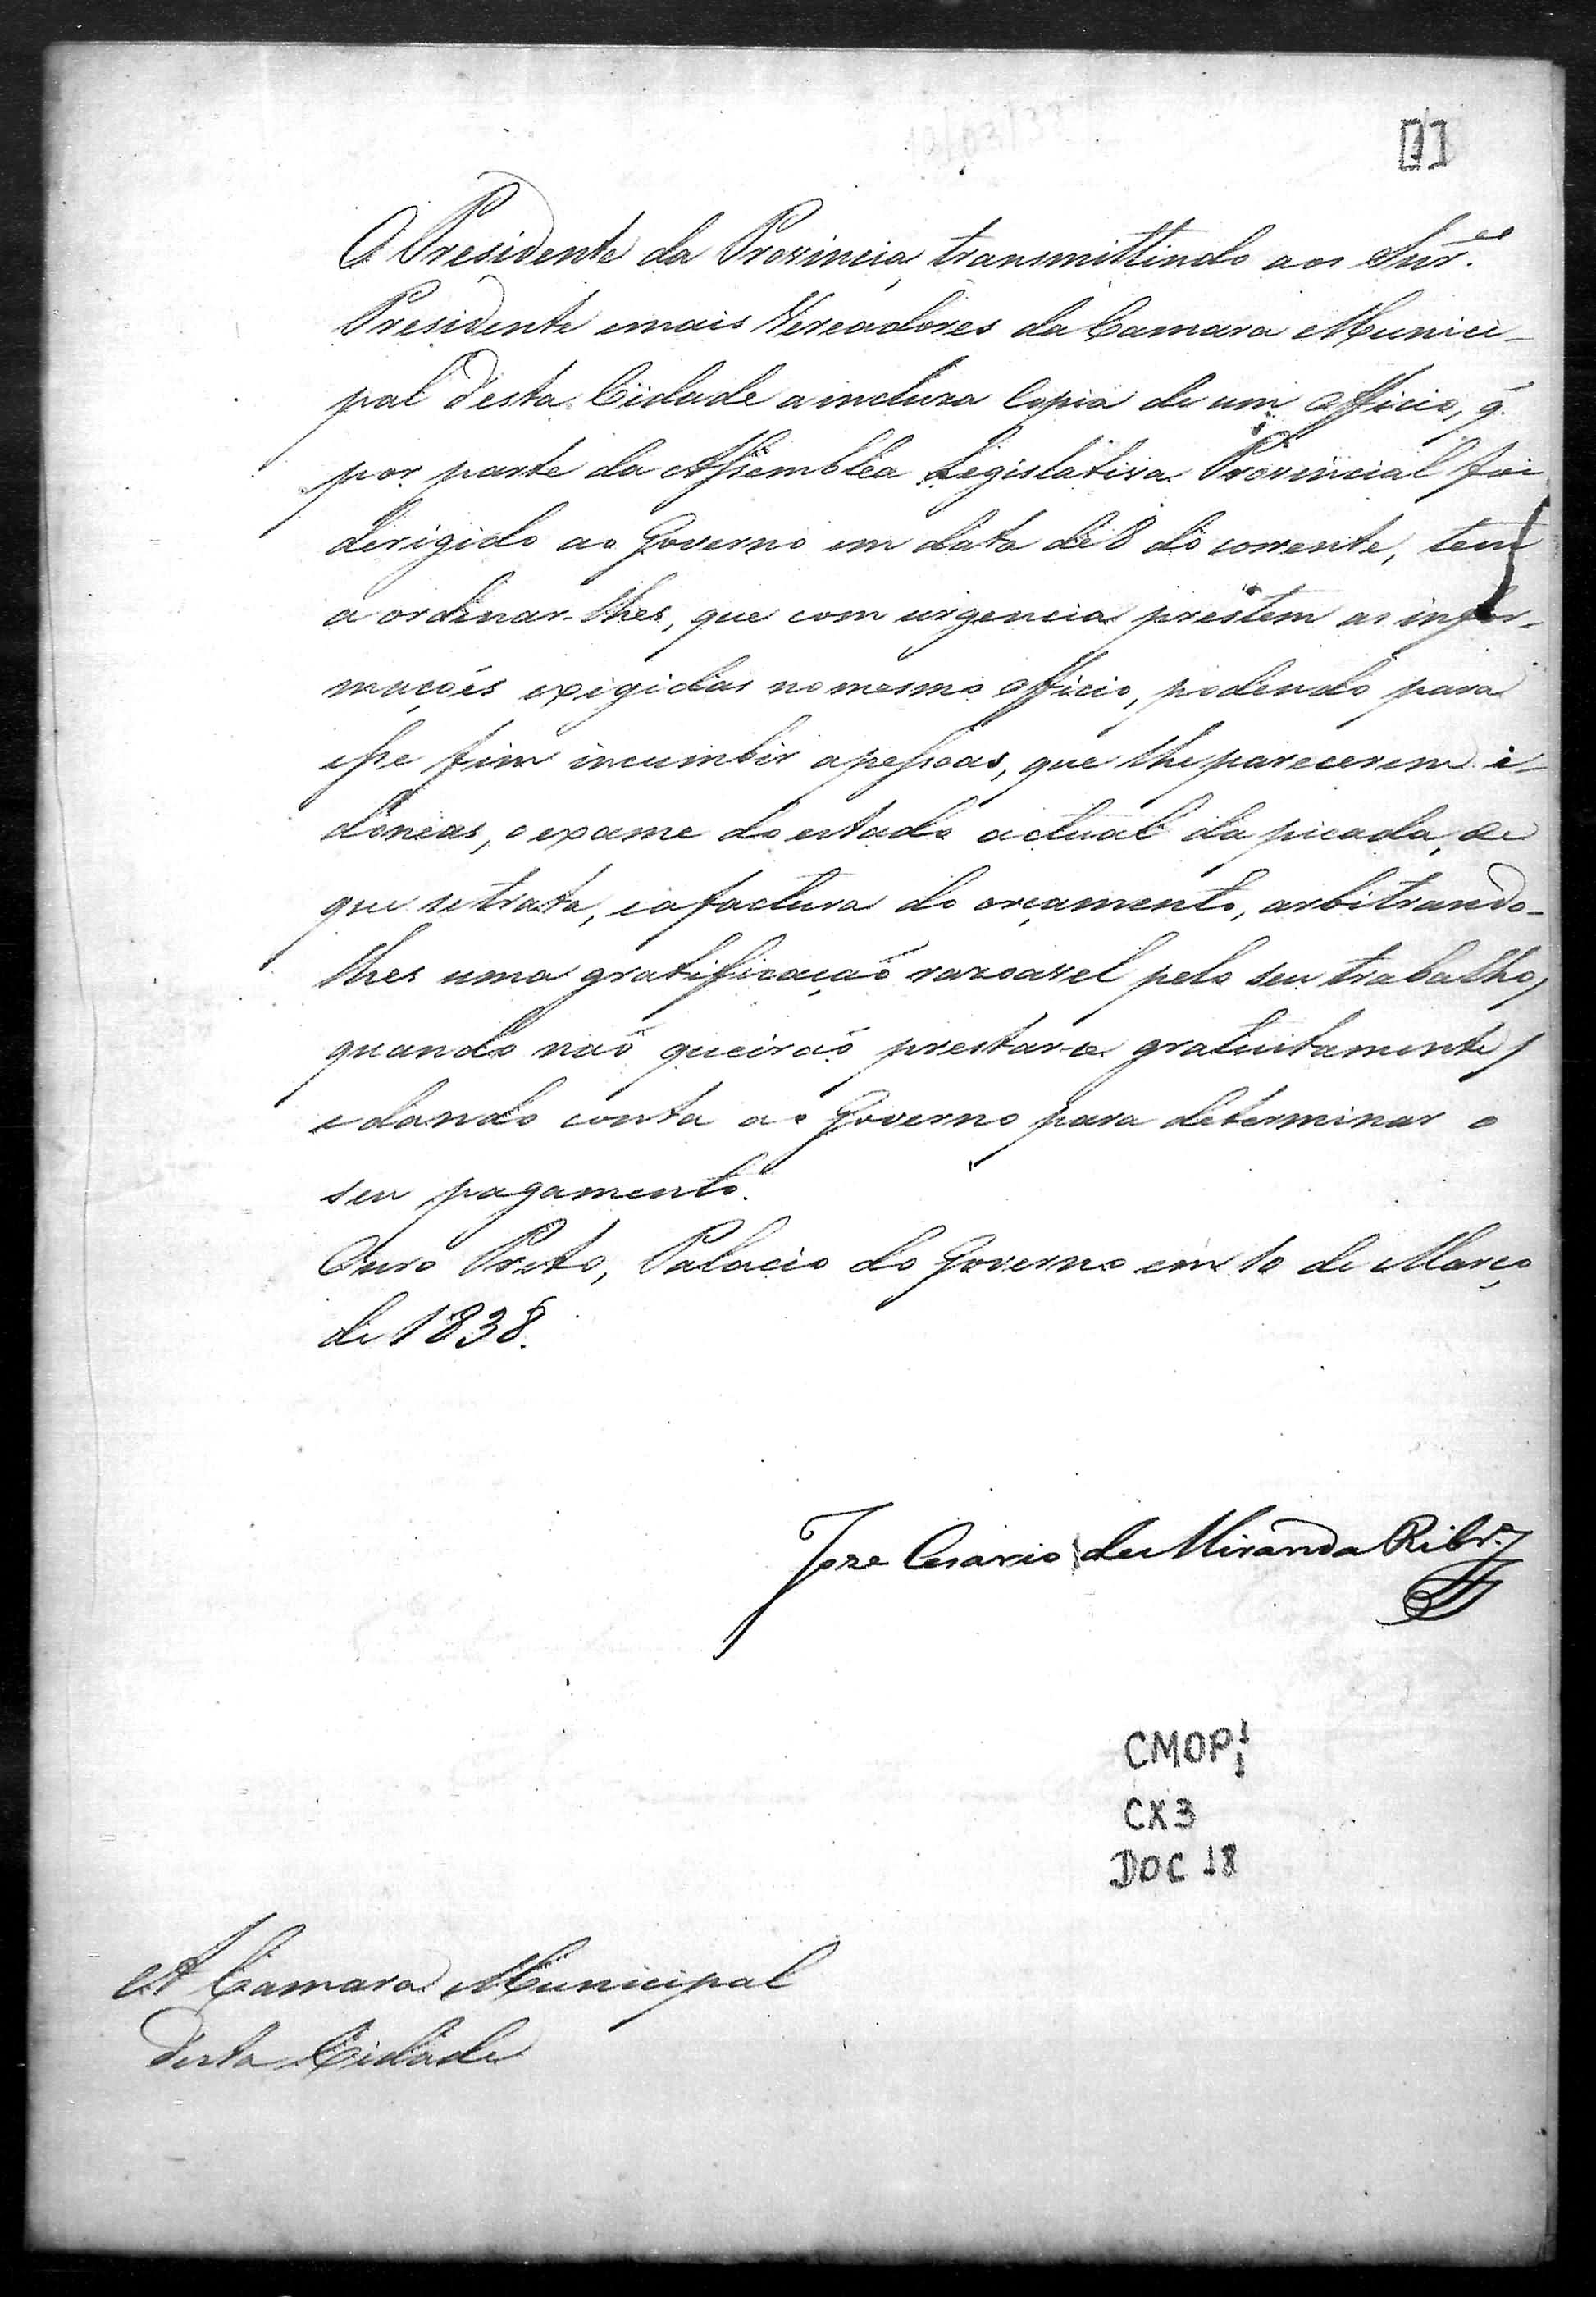 [1]
O Presidente da Provincia, transmittindo aos Snr.es
Presidente emais Vereadores da Camara Munici-
pal d'esta Cidade a incluza Copia de um Officio, q̃
por parte da Assemblea Legislativa Provincial foi
dirigido ao Governo em data de 8 do corrente, tem
a ordenar-lhes, que com urgencia prestem as infor-
maçoẽs exigidas no mesmo Officio, podendo para
esse fim incumbir apessoas, que lhe parecerem i-
doneas, o exame do estado actual da picada, de
que se trata, e a factura do orçamento, arbitrando-
lhes uma gratificaçaõ razoavel pelo seu trabalho,
quando naõ queiraõ prestar-se gratuitamente,
e dando conta ao Governo para determinar o
seu pagamento.
Ouro Preto, Palacio do Governo em 10 de Março
de 1838.
Joze Cesario de Miranda Ribr.o
CMOP
CX 3
DOC 18
A Camara Municipal
desta Cidade